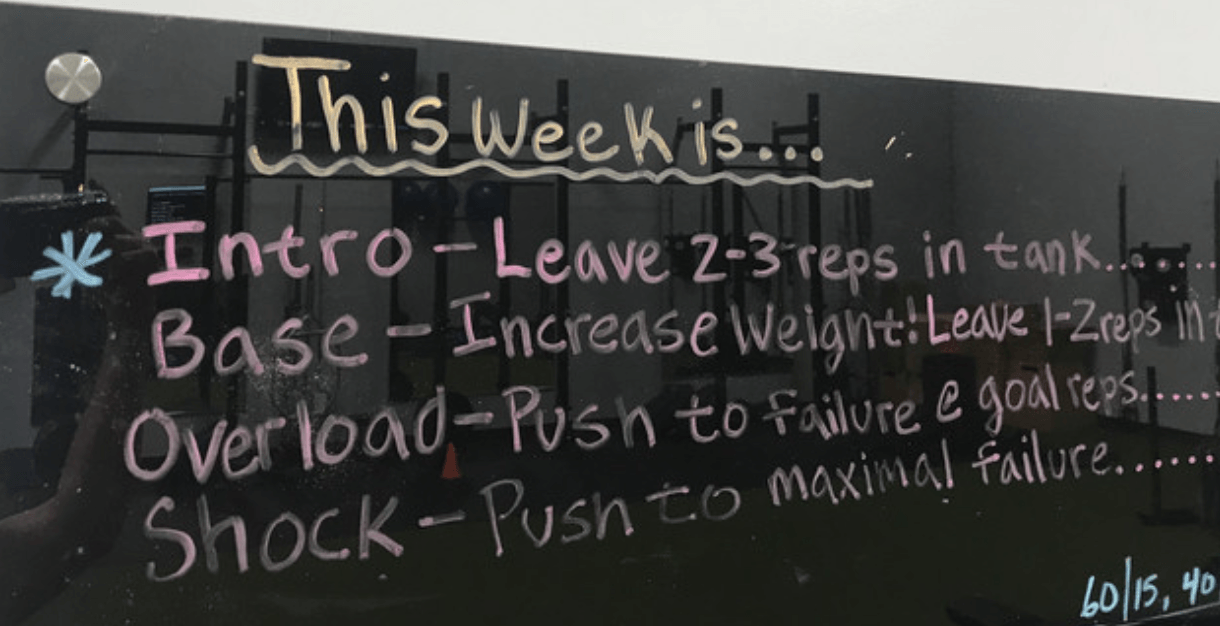 This Week is...
* Intro - Leave 2-3 reps in tank........
Base - Increase Weight! Leave 1-2 reps in
Overload - Push to failure @ goal reps......
Shock - Push to maximal failure.......
60/15, 40